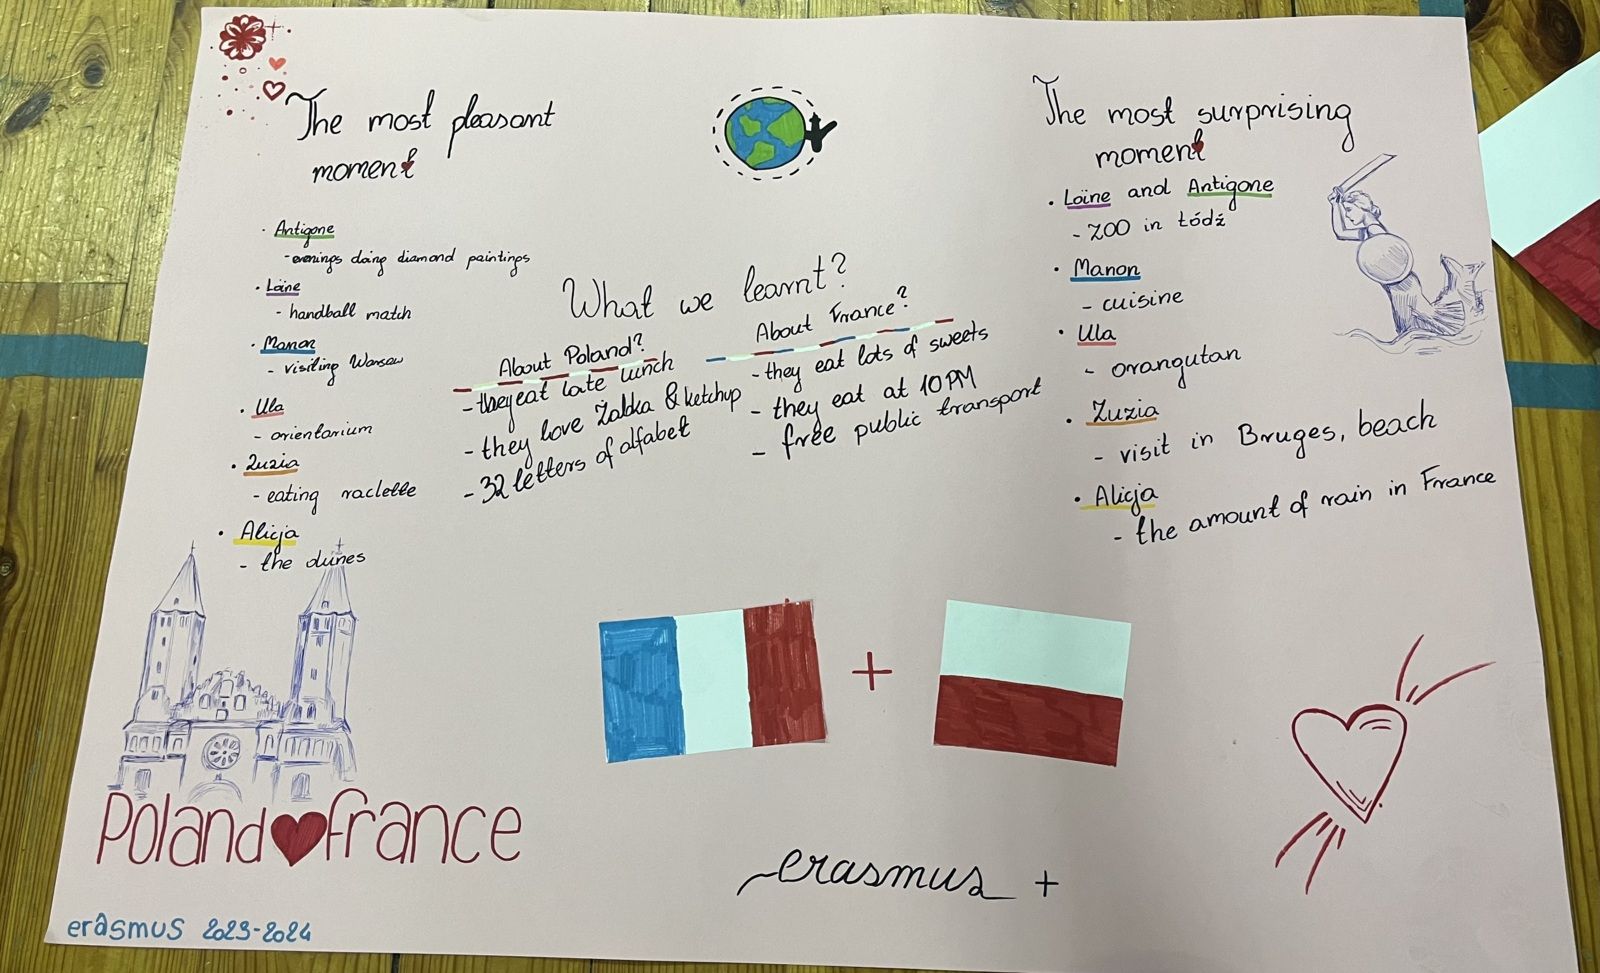 The most pleasant
moment
· Antigone
- evenings doing diamond paintings
· Loïne
- handball match
· Manon
- visiting Warsaw
· Ula
- orientarium
· Zuzia
- eating raclette
· Alicja
- the dunes
What we learnt?
About Poland?
- they eat late lunch
- they love Żabka & ketchup
- 32 letters of alfabet
About France?
- they eat lots of sweets
- they eat at 10PM
- free public transport
The most surprising
moment
· Loïne and Antigone
- ZOO in Łódź
· Manon
- cuisine
· Ula
- orangutan
· Zuzia
- visit in Bruges, beach
· Alicja
- the amount of rain in France
+
Poland france
erasmus +
erasmus 2023-2024